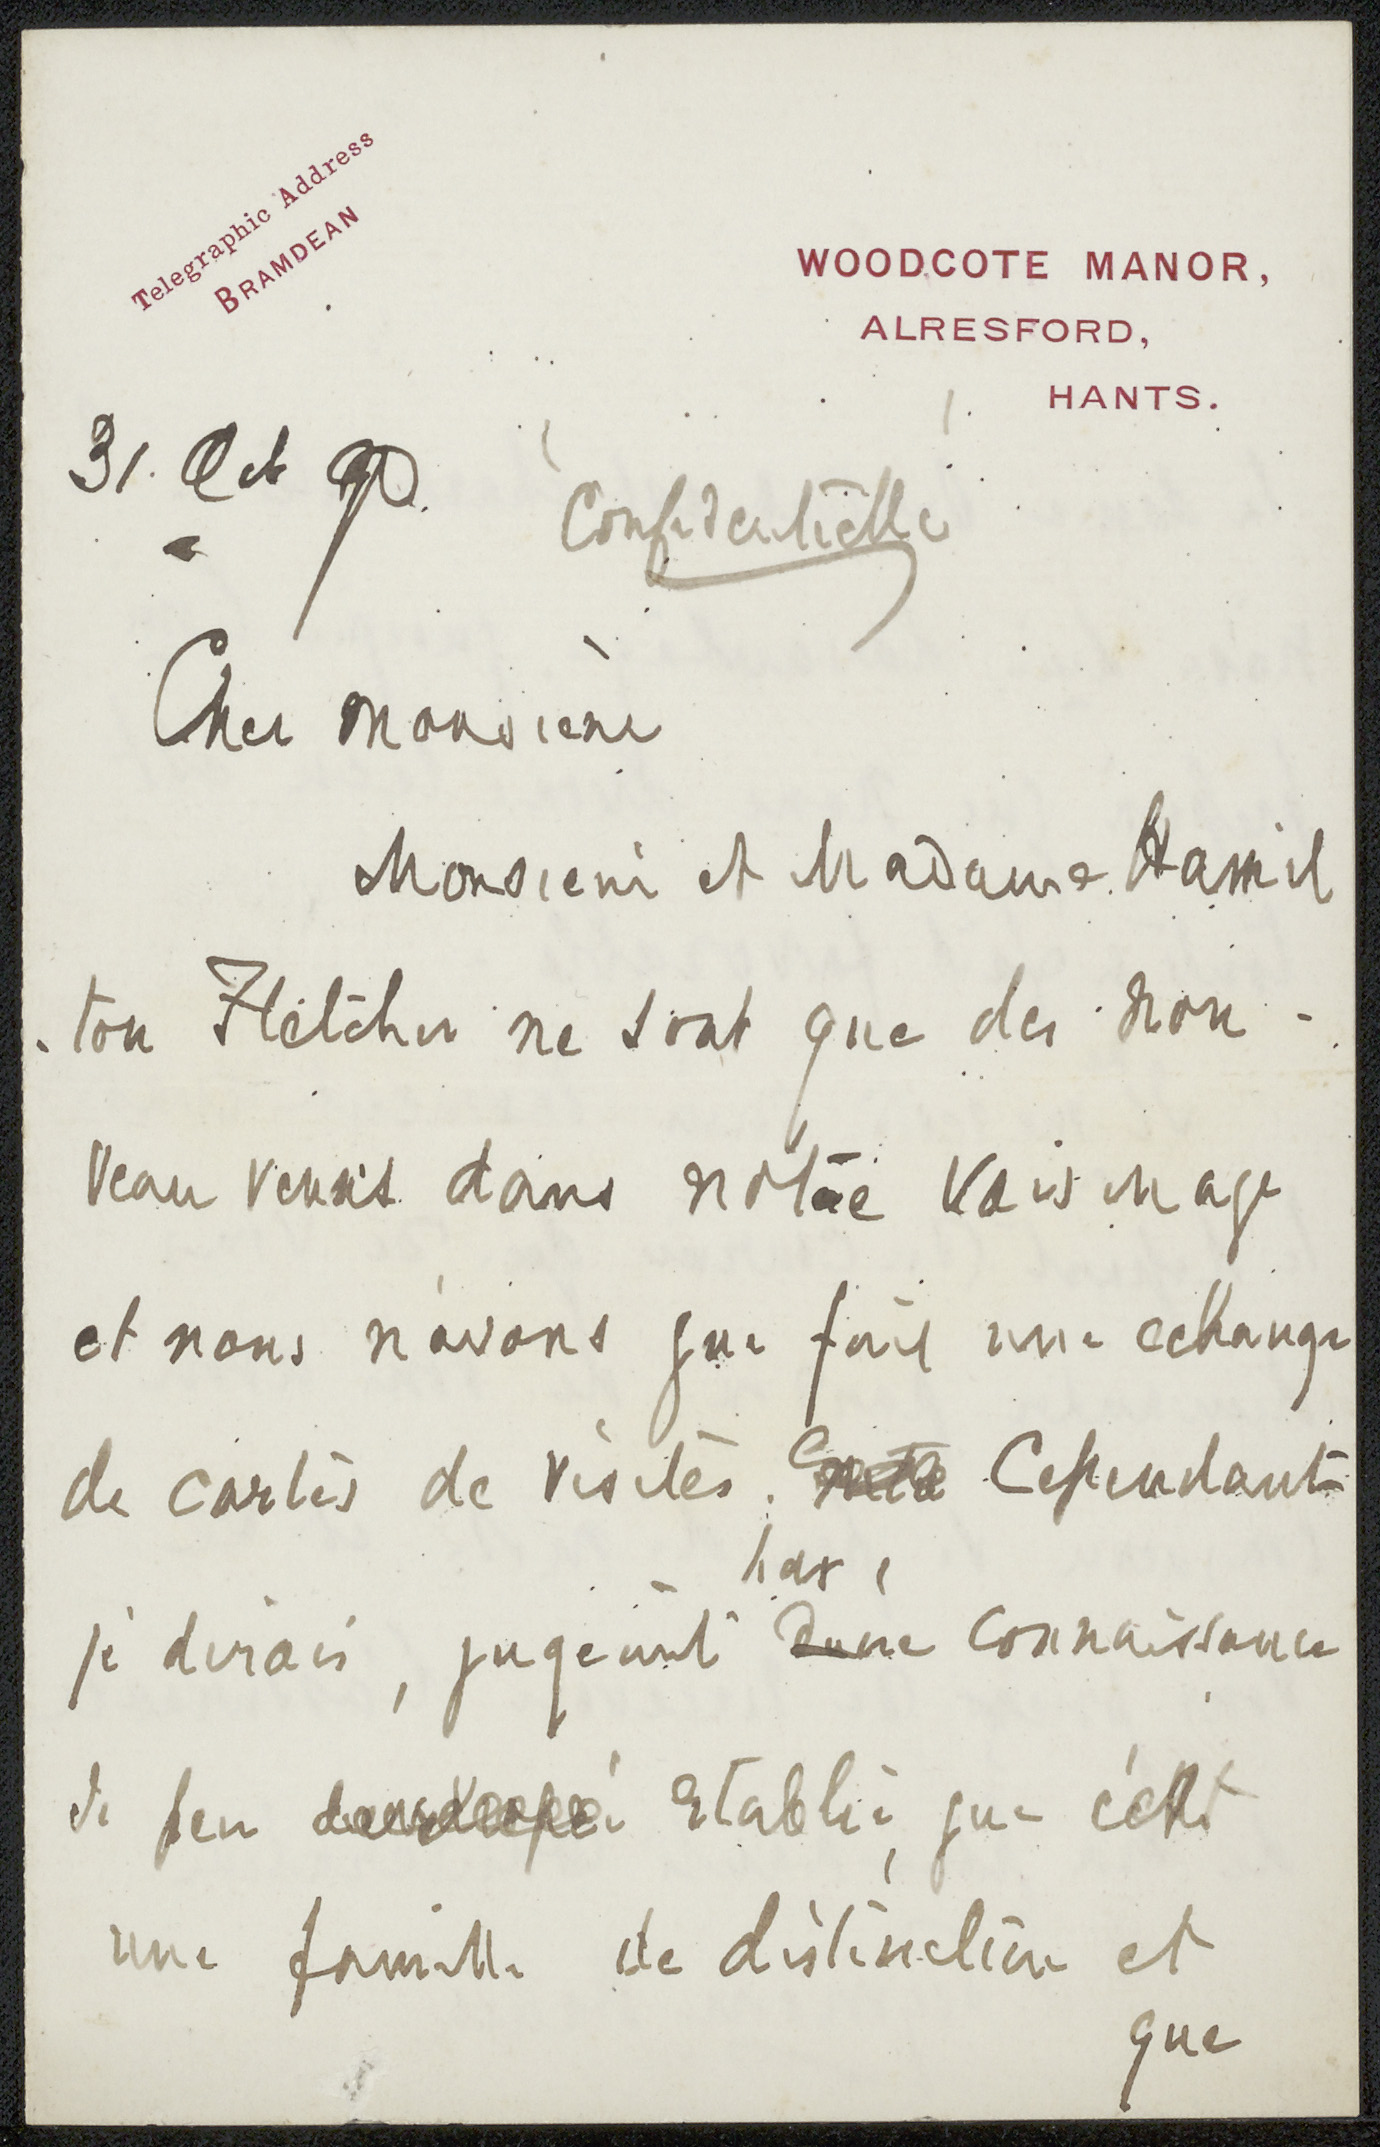 Telegraphic Address
BRAMDEAN
WOODCOTE MANOR,
ALRESFORD,
HANTS.
31. Oct 90.
Confidentielle
Cher Monsieur
Monsieur et Madame Hamil
ton Fletcher ne sont que des nou-
veau venus dans nôtre voisinage
et nous n'avons que fait une echange
de cartes de visites. Cependant
par,
je dirais, jugeant une connaissance
si peu etablie, que c'est
une famille de distinction et
que